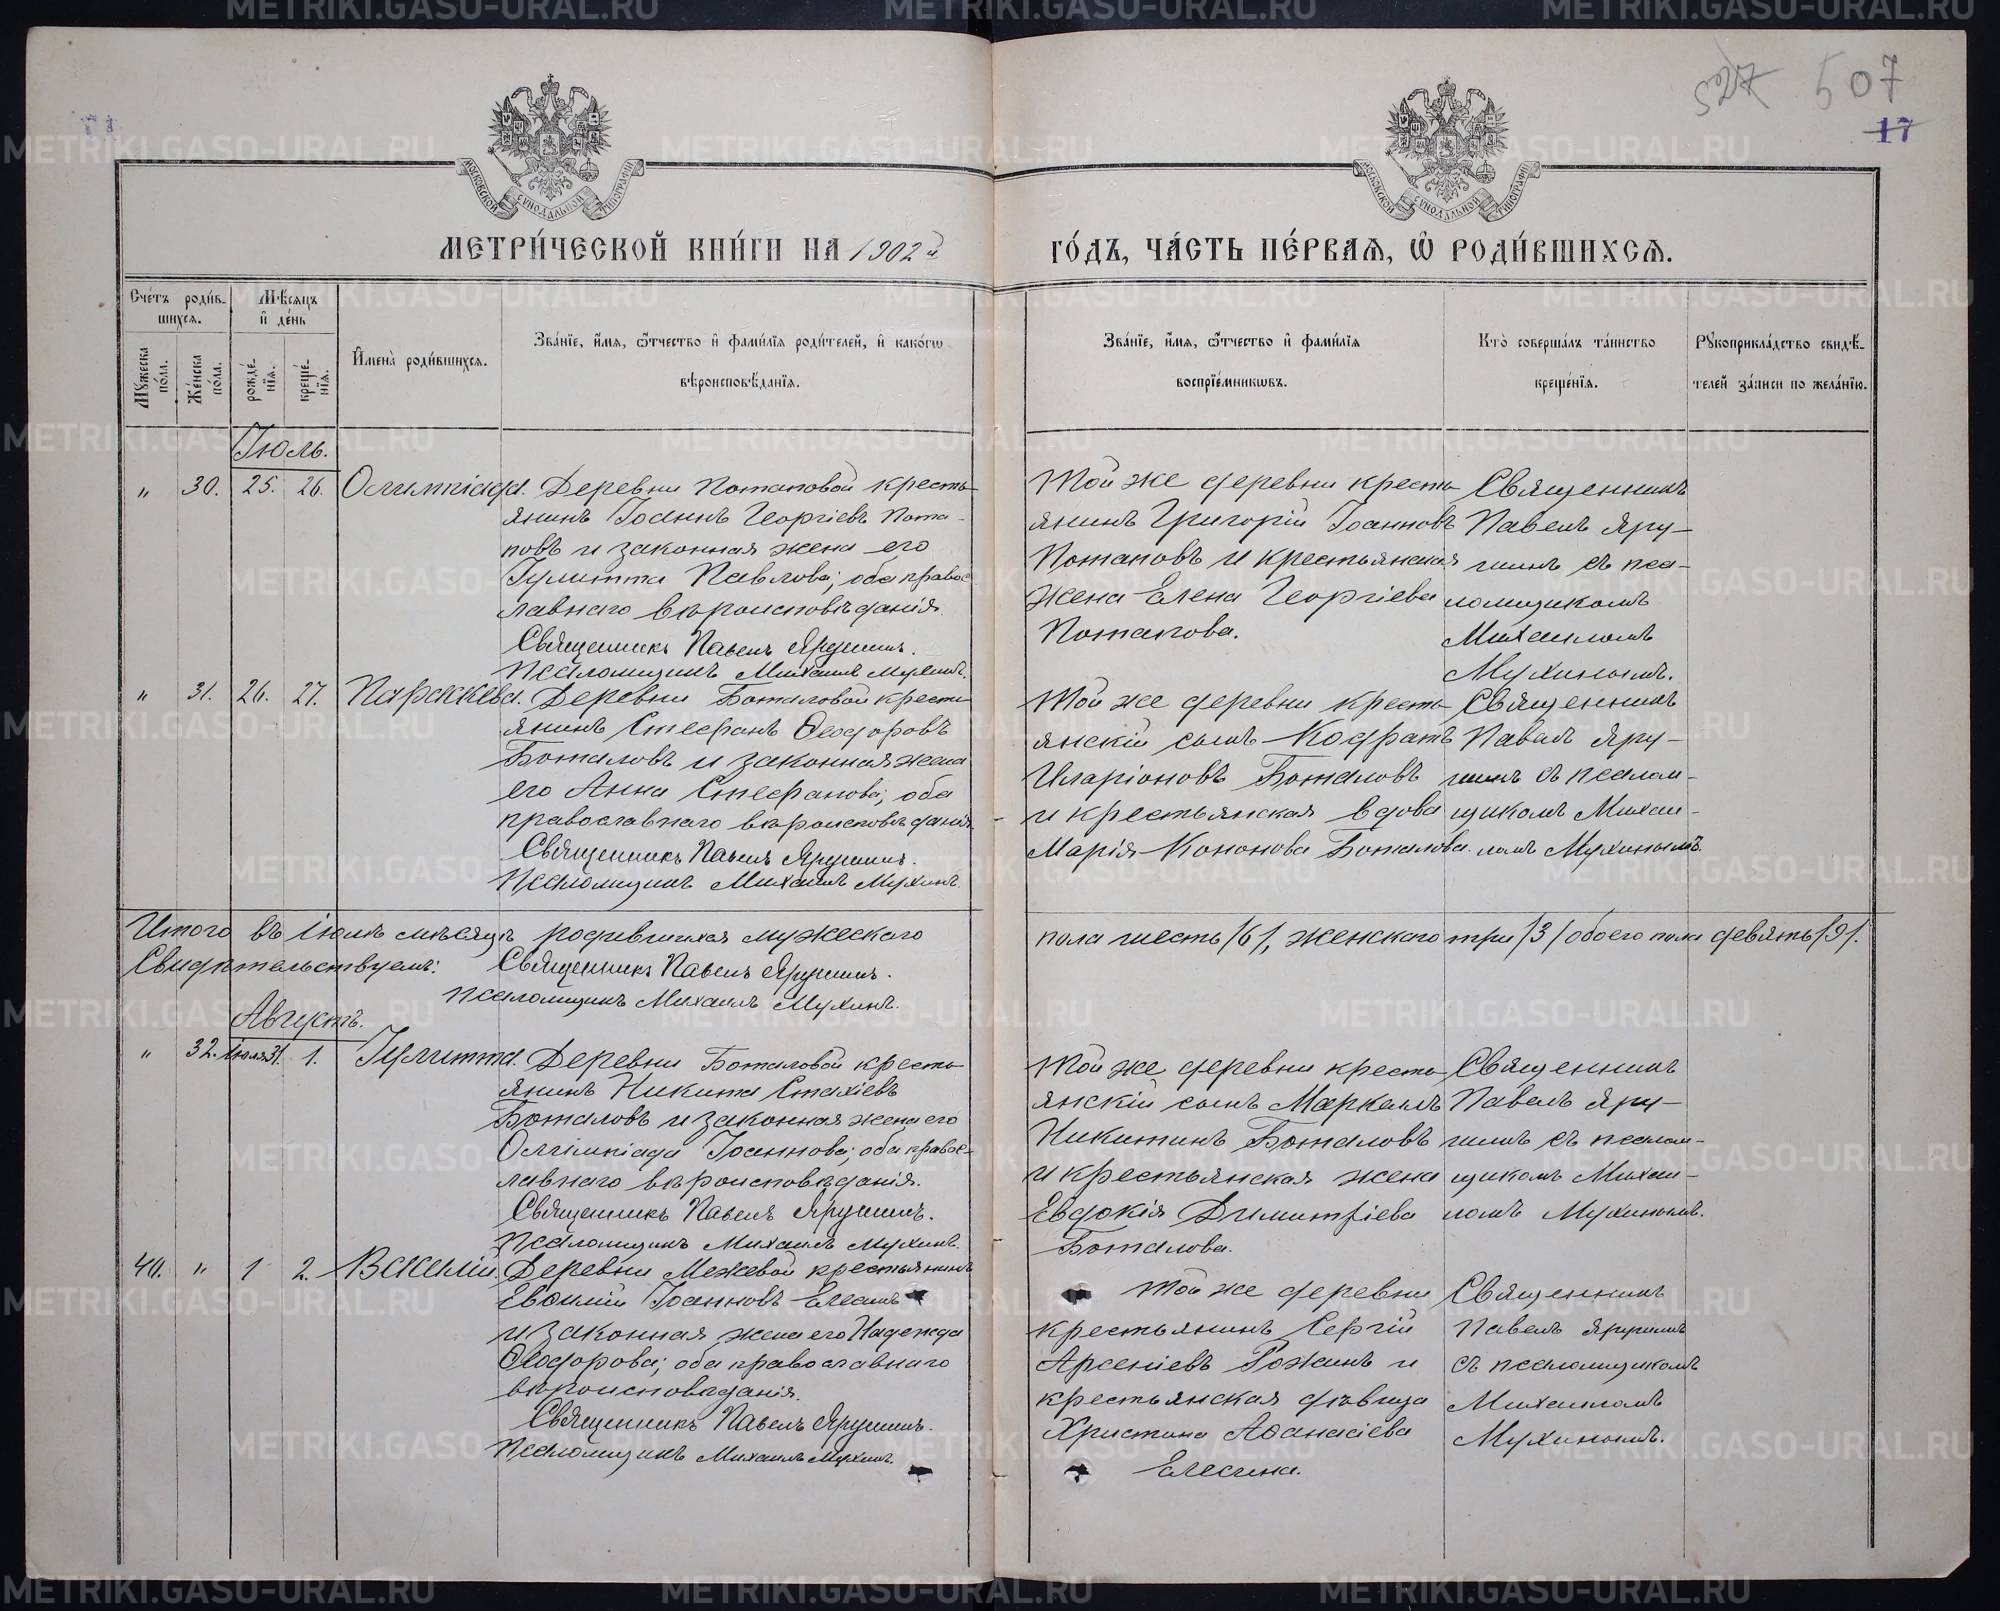 527 507
17
МОСКОВСКОЙ СѴНОДАЛЬНОЙ ТИПОГРАФІИ
МОСКОВСКОЙ СѴНОДАЛЬНОЙ ТИПОГРАФІИ
МЕТРИ́ЧЕСКОЙ КНИ́ГИ НА 1902й
ГО́ДЪ, ЧА́СТЬ ПЕ́РВАЯ, Ѿ РОДИ́ВШИХСЯ.
Сче́тъ роди́в-
шихся.
Мѣ́сяцъ
и҆ де́нь
Мꙋ́жеска по́ла.
Же́нска по́ла.
рожде́нїя.
креще́нїя.
И҆мена̀ роди́вшихся.
Зва́нїе, и҆́мя, ѻ҆́тчество и҆ фами́лїя роди́телей, и҆ како́гѡ
вѣроисповѣ́данїя.
Зва́нїе, и҆́мя, ѻ҆́тчество и҆ фами́лїя
воспрїе́мникѡвъ.
Кто̀ соверша́лъ та́инство
креще́нїя.
Рꙋкоприкла́дство свидѣ́-
телей за́писи по жела́нїю.
Іюль.
" 30. 25. 26. Олимпіада. Деревни Потаповой кресть-
янинъ Іоаннъ Георгіевъ Пота-
повъ и законная жена его
Іулитта Павлова; оба правос-
лавнаго вѣроисповѣданія.
Священникъ Павелъ Ярушинъ.
Псаломщикъ Михаилъ Мухинъ.
Той же деревни кресть-
янинъ Григорій Іоанновъ
Потаповъ и крестьянская
жена Елена Георгіева
Потапова.
Священникъ
Павелъ Яру-
шинъ съ пса-
ломщикомъ
Михаиломъ
Мухинымъ.
" 31. 26. 27. Параскева. Деревни Боталовой кресть-
янинъ Стефанъ Ѳеодоровъ
Боталовъ и законная жена
его Анна Стефанова; оба
православнаго вѣроисповѣданія.
Священникъ Павелъ Ярушинъ.
Псаломщикъ Михаилъ Мухинъ.
Той же деревни кресть-
янскій сынъ Кодратъ
Иларіоновъ Боталовъ
и крестьянская вдова
Марія Кононова Боталова.
Священникъ
Павелъ Яру-
шинъ съ псалом-
щикомъ Михаи-
ломъ Мухинымъ.
Итого въ іюлѣ мѣсяцѣ родившихся мужескаго
пола шесть /6/, женскаго три /3/ обоего пола девять /9/.
Свидѣтельствуемъ: Священникъ Павелъ Ярушинъ.
Псаломщикъ Михаилъ Мухинъ.
Августъ.
" 32. Іюля 31. 1. Іулитта. Деревни Боталовой кресть-
янинъ Никита Стахіевъ
Боталовъ и законная жена его
Олимпіада Іоаннова; оба правос-
лавнаго вѣроисповѣданія.
Священникъ Павелъ Ярушинъ.
Псаломщикъ Михаилъ Мухинъ.
Той же деревни кресть-
янскій сынъ Маркеллъ
Никитинъ Боталовъ
и крестьянская жена
Евдокія Димитріева
Боталова.
Священникъ
Павелъ Яру-
шинъ съ псалом-
щикомъ Михаи-
ломъ Мухинымъ.
40. " 1 2. Василій. Деревни Межевой крестьянинъ
Евѳимій Іоанновъ Елесинъ
и законная жена его Надежда
Ѳеодорова; оба православнаго
вѣроисповѣданія.
Священникъ Павелъ Ярушинъ.
Псаломщикъ Михаилъ Мухинъ.
Той же деревни
крестьянинъ Сергій
Арсеніевъ Рожинъ и
крестьянская дѣвица
Христина Аѳанасіева
Елесина.
Священникъ
Павелъ Ярушинъ
съ псаломщикомъ
Михаиломъ
Мухинымъ.
METRIKI.GASO-URAL.RU